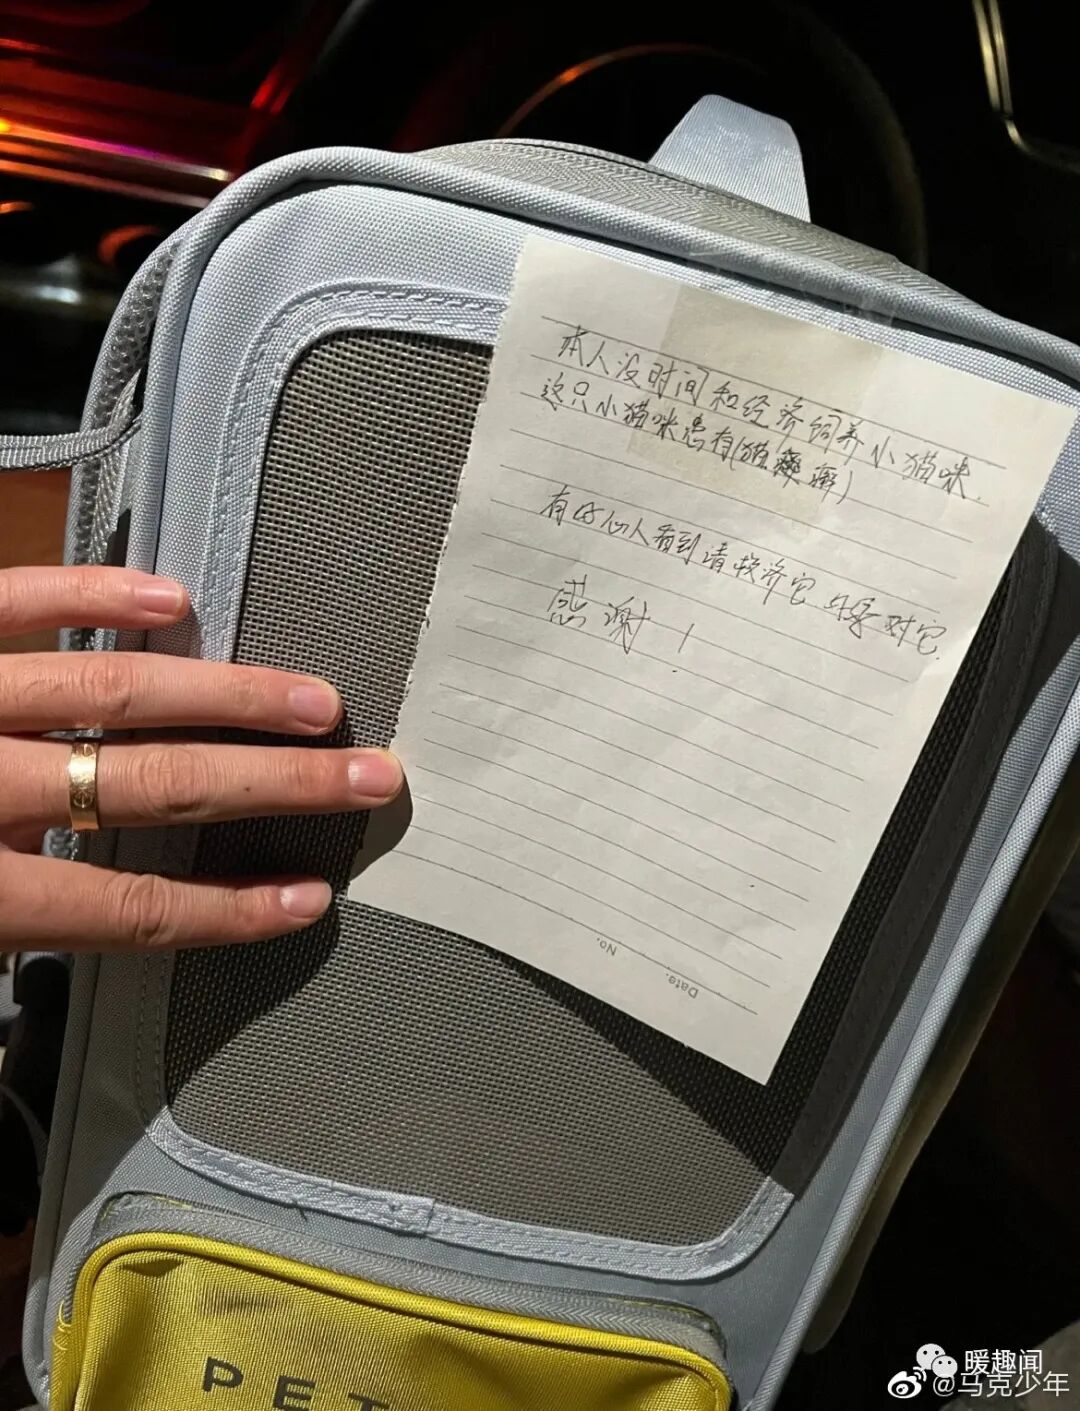 本人没时间和经济饲养小猫咪.
这只小猫咪患有(猫癣癣)
有好心人看到请救济它 善待它
感谢！
No.
Date.
PET
暖趣闻
@马克少年